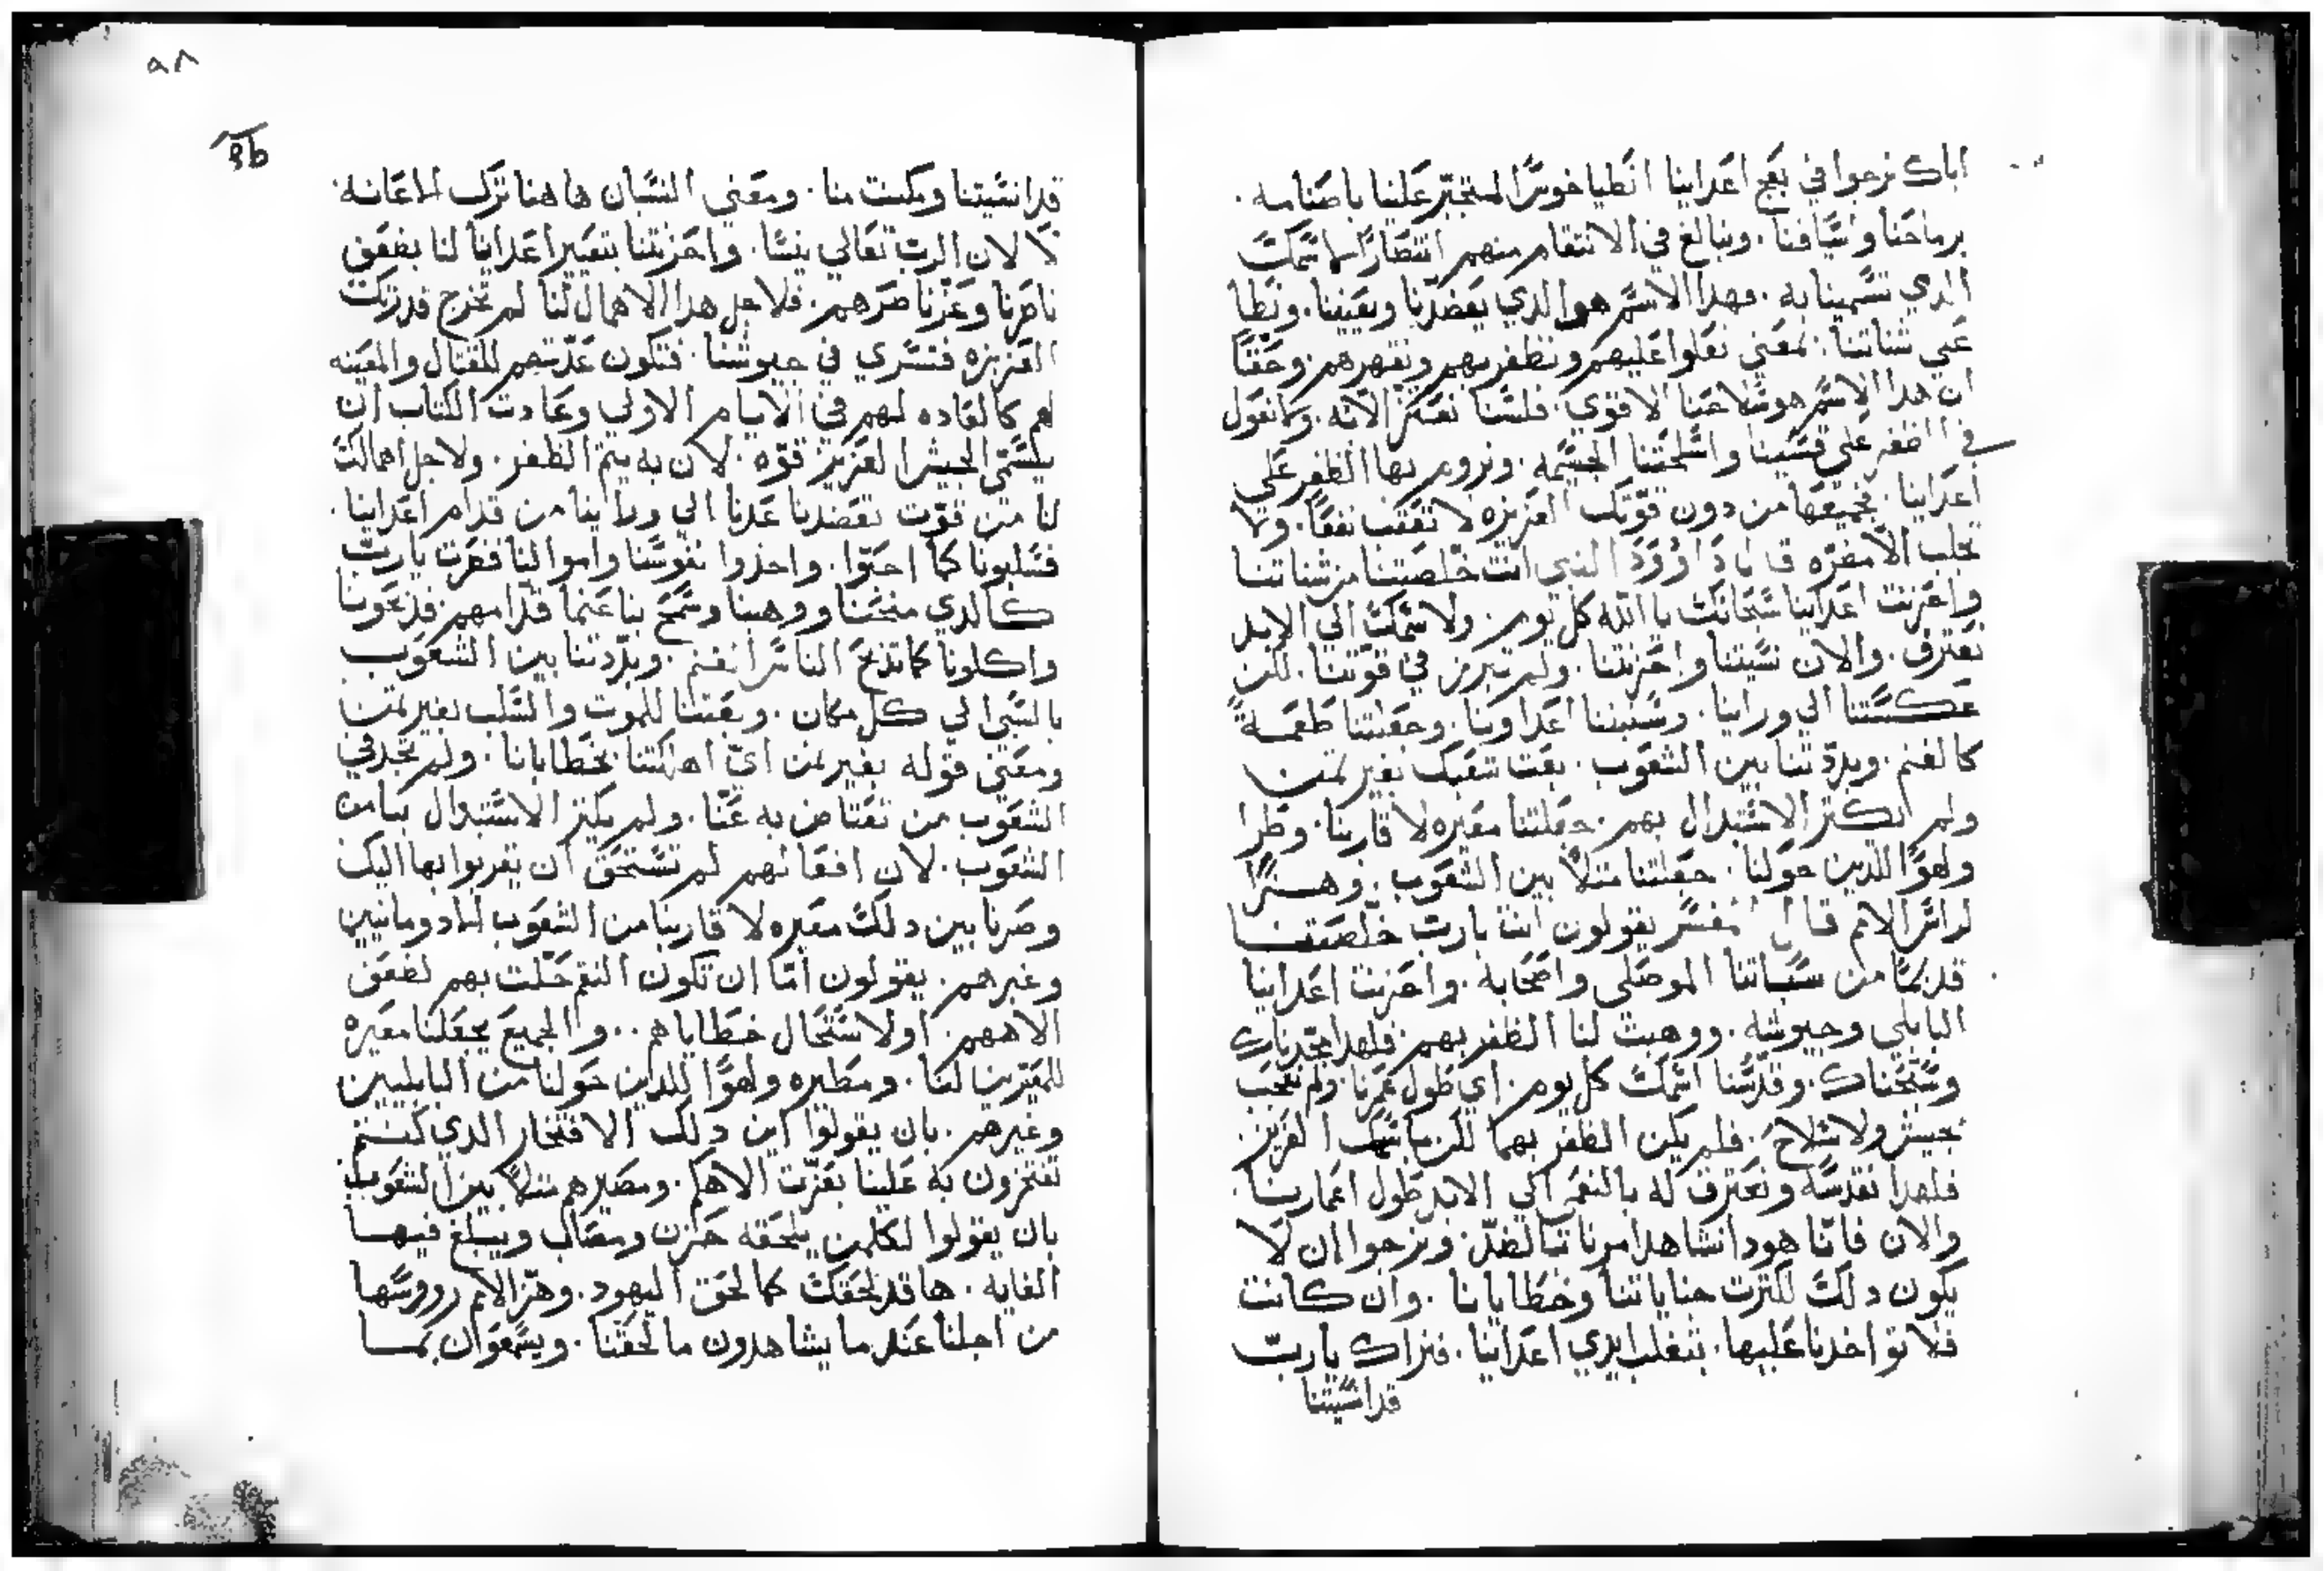 اياك نرجوا في بعج اعداينا انطياخوس المتجبر علينا باصنامه .
برماحنا واسيافنا . ونبالغ في الانتقام منهم انتصارًا لاسمك
الدي تسمينا به . فهدا الاسم هو الدي يعضدنا ويعيننا . ونطا
علي شناتنا . بمعني نعلوا عليهم ونظفر بهم ونقهرهم . وحقًا
ان هدا الاسم هو سلاحنا الاقوي . فلسنا نفتكر الانه . ولا نعول
في الظفر علي قسينا واسلحتنا المجسمه . ونروم بها الظفر علي
اعداينا . فجميعها من دون قوتك العزيزه لا تعقب نفعًا . ولا
تجلب الا مضره قال داوود النبي انت خلصتنا من شناتنا
واخزيت اعداينا سبحانك يا الله كل يوم . ولاسمك الي الابد
نعترف . والان نسيتنا واخزيتنا . ولم تبرز في قوتنا . لكن
عكستنا الي وراينا . وسبتنا اعداونا . وجعلتنا طعمة
كالغنم . وبددتنا بين الشعوب . بعت شعبك بغير تمن
ولم تكتر الاستبدال بهم . جعلتنا معيره لاقاربنا . وطنزا
ولهوًا للدين حولنا . جعلتنا متلًا بين الشعوب . وهــزًا
لرائس الامم قال المفسر يقولون انت يارب خلصتنا
قديمًا من سبياتنا الموصلي واصحابه . واخزيت اعداينا
البابلي وجيوشه . ووهبت لنا الظفر بهم . فلهدا مجدناك
وسبحناك . وقدسنا اسمك كل يوم . اي طول عمرنا . ولم نعجب
بجيش ولا سلاح . فلم يكن الظفر بهما لكن باسمك العزيز
فلهدا نقدسه ونعترف له بالنعم الي الابد طول اعمارنا .
والان فانا هودا نشاهد امرنا بالضد . ونرجوا ان لا
يكون دلك لكترت جناياتنا وخطايانا . وان كانت
فلا تواخدنا عليها . بتغلب ايدي اعداينا . فنراك يارب
قد انسيتنا
٩٨
قد انسيتنا ومكنت منا . ومعني النسيان هاهنا ترك الاعانه
لا لان الرب تعالي ينسا . واخزيتنا بتعيير اعداينا لنا بضعف
ناصرنا وعز ناصرهم . فلاجل هدا الاهمال لنا لم تخرج قدرتك
العزيزه فتسري في جيوشنا . فتكون عدتهم للقتال والمعينه
لهم كالعاده لهم في الايام الاولي وعادت الكتاب ان
يسمي الجيش العزيز قوه . لان به يتم الظفر . ولاجل اهمالك
لنا من قوت تعضدنا عدنا الي وراينا من قدام اعداينا .
فسلبونا كما احبوا . واخدوا نفوسنا واموالنا فصرت يارب
كالدي منحنا ووهبنا وسمح بنا عنما قدامهم . فدبحونا
واكلونا كما تدبح الناس الغنم . وبددتنا بين الشعوب
بالسبي الي كل مكان . وبعتنا للموت والسلب بغير تمن
ومعني قوله بغير تمن اي اهلكتنا بخطايانا . ولم تجد في
الشعوب من تعتاض به عنا . ولم يكتر الاستبدال بنا من
الشعوب . لان افعالهم لم تستحق ان يقربوا بها اليك
وصرنا بين دلك معيره لاقاربنا من الشعوب الادومانيين
وغيرهم . يقولون اما ان تكون النقم حلت بهم لضعف
الاههم . او لاستحال خطاياهم . . والجميع يجعلنا معيره
للمعيرين لنا . ومطنزه ولهوًا للدين حولنا من البابليين
وغيرهم . بان يقولوا اين دلك الافتخار الدي كنتم
تفتخرون به علينا بعزت الاهكم . ومصيرهم متلًا بين الشعوب
بان يقولوا لكلمن يلحقه حزن ومصاب ويبلغ فيها
الغايه . ها قد لحقك كما لحق اليهود . وهز الامم رووسها
من اجلنا عند ما يشاهدون ما لحقنا . ويسمعوان بمــا